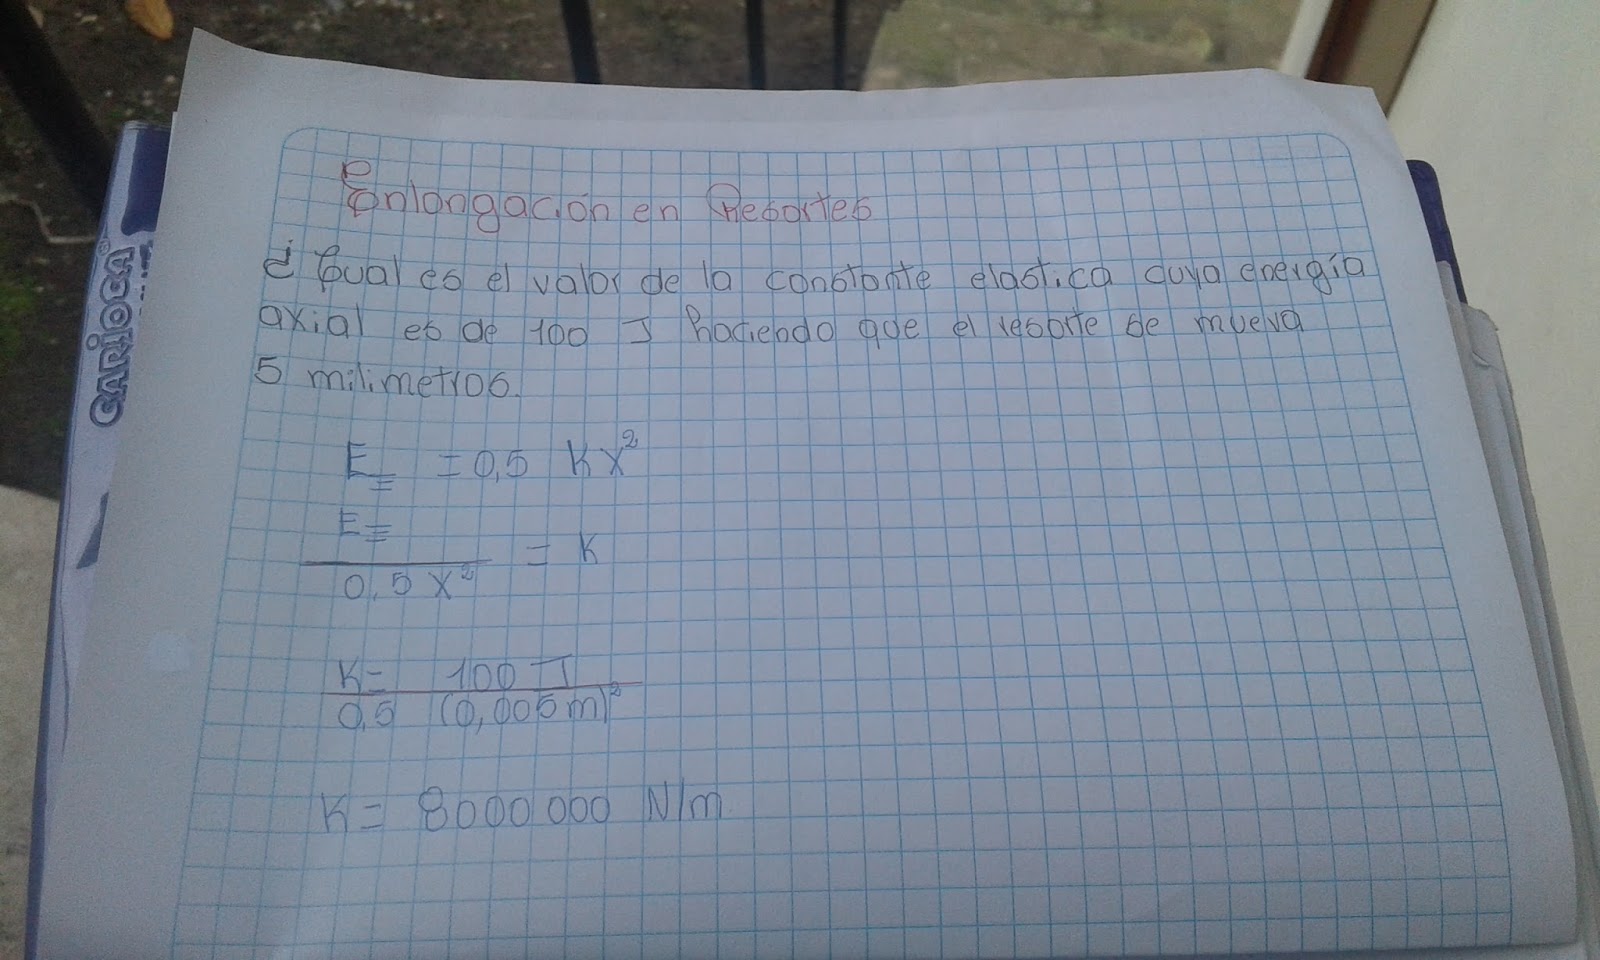 Enlongación en Resortes
¿Cual es el valor de la constante elastica cuya energía
axial es de 100 J haciendo que el resorte se mueva
5 milimetros.
E = 0,5 K x²
E
0,5 x² = K
K = 100 J
0,5 (0,005 m)²
K = 8000 000 N/m
CARIOCA®